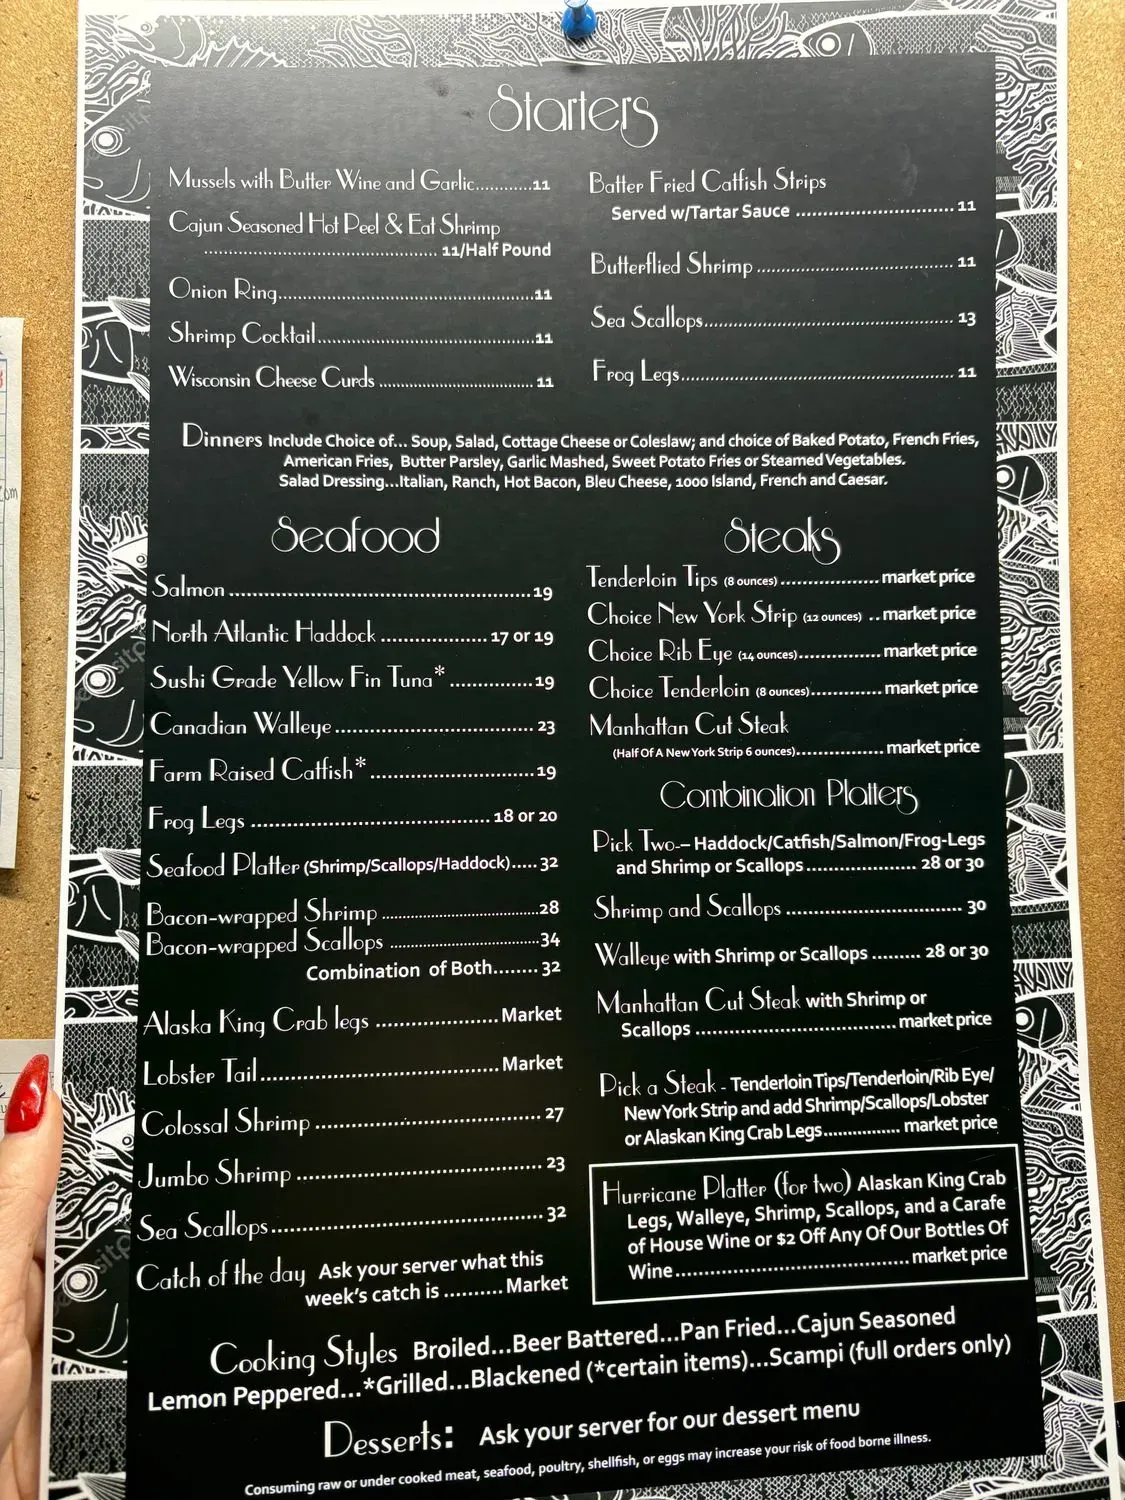 Starters
Mussels with Butter Wine and Garlic............11
Cajun Seasoned Hot Peel & Eat Shrimp
.......................................... 11/Half Pound
Onion Ring..............................................11
Shrimp Cocktail.......................................11
Wisconsin Cheese Curds ............................ 11
Batter Fried Catfish Strips
Served w/Tartar Sauce ............................ 11
Butterflied Shrimp................................... 11
Sea Scallops............................................ 13
Frog Legs................................................ 11
Dinners Include Choice of... Soup, Salad, Cottage Cheese or Coleslaw; and choice of Baked Potato, French Fries,
American Fries, Butter Parsley, Garlic Mashed, Sweet Potato Fries or Steamed Vegetables.
Salad Dressing...Italian, Ranch, Hot Bacon, Bleu Cheese, 1000 Island, French and Caesar.
Seafood
Salmon .................................................. 19
North Atlantic Haddock .................. 17 or 19
Sushi Grade Yellow Fin Tuna* ............... 19
Canadian Walleye ................................... 23
Farm Raised Catfish* ............................. 19
Frog Legs ........................................ 18 or 20
Seafood Platter (Shrimp/Scallops/Haddock)..... 32
Bacon-wrapped Shrimp .......................................28
Bacon-wrapped Scallops .....................................34
Combination of Both........ 32
Alaska King Crab legs .................... Market
Lobster Tail....................................... Market
Colossal Shrimp ..................................... 27
Jumbo Shrimp ........................................ 23
Sea Scallops............................................ 32
Catch of the day Ask your server what this
week's catch is .......... Market
Steaks
Tenderloin Tips (8 ounces)................... market price
Choice New York Strip (12 ounces) .. market price
Choice Rib Eye (14 ounces)................ market price
Choice Tenderloin (8 ounces).............. market price
Manhattan Cut Steak
(Half Of A New York Strip 6 ounces)................ market price
Combination Platters
Pick Two-– Haddock/Catfish/Salmon/Frog-Legs
and Shrimp or Scallops .................... 28 or 30
Shrimp and Scallops ................................ 30
Walleye with Shrimp or Scallops ......... 28 or 30
Manhattan Cut Steak with Shrimp or
Scallops ..................................... market price
Pick a Steak - Tenderloin Tips/Tenderloin/Rib Eye/
New York Strip and add Shrimp/Scallops/Lobster
or Alaskan King Crab Legs................ market price
Hurricane Platter (for two) Alaskan King Crab
Legs, Walleye, Shrimp, Scallops, and a Carafe
of House Wine or $2 Off Any Of Our Bottles Of
Wine........................................... market price
Cooking Styles Broiled...Beer Battered...Pan Fried...Cajun Seasoned
Lemon Peppered...*Grilled...Blackened (*certain items)...Scampi (full orders only)
Desserts: Ask your server for our dessert menu
Consuming raw or under cooked meat, seafood, poultry, shellfish, or eggs may increase your risk of food borne illness.